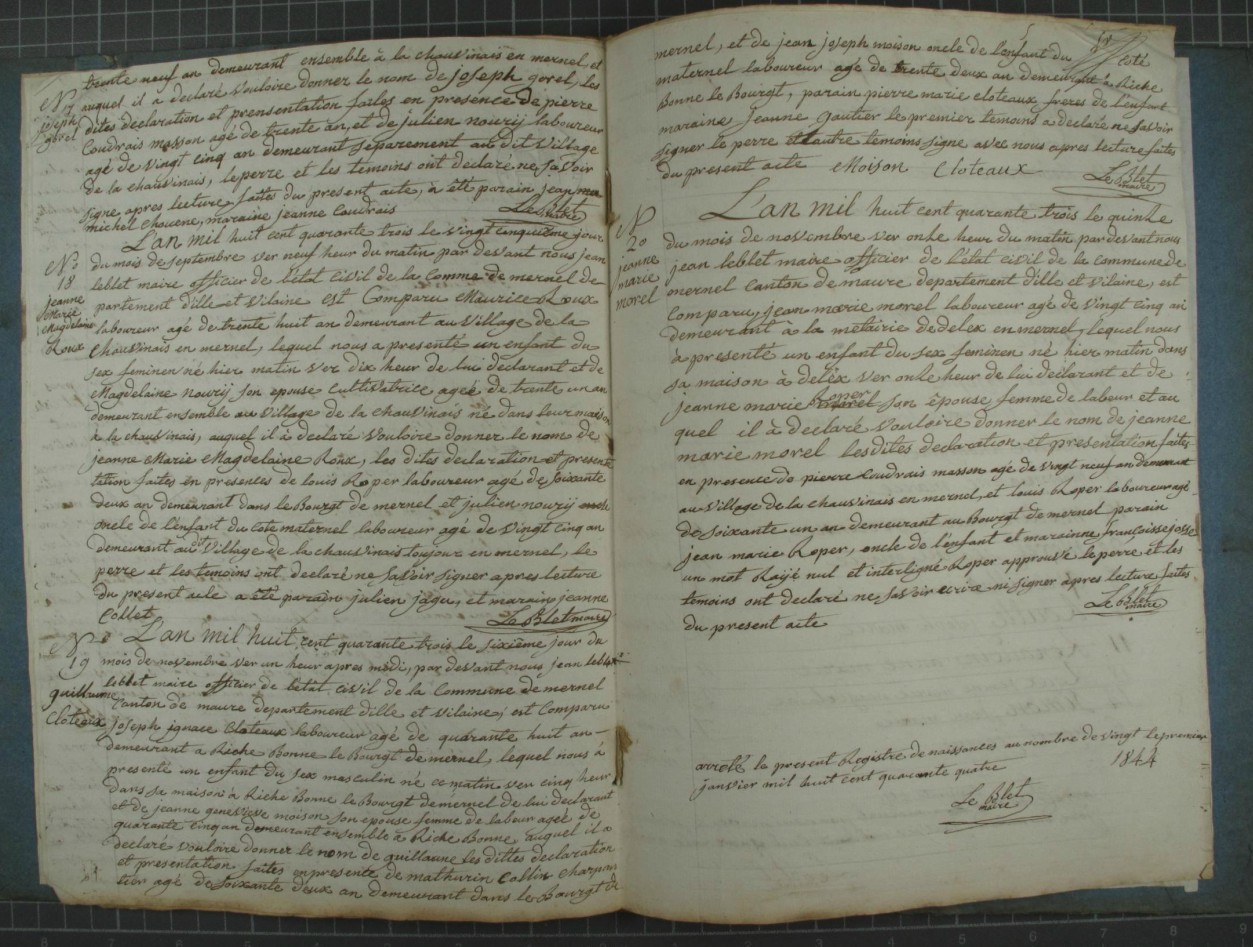 trente neuf an demeurant ensemble à la chauvinais en mernel et
auquel il a declaré vouloire donner le nom de joseph gorel, les
dites declaration et prensentation faites en presence de pierre
Coudrais masson agé de trente an, et de julien nourij laboureur
agé de vingt cinq an demeurant separement au dit village
de la chauvinais, le perre et les temoins ont declaré ne savoir
signe apres lecture faites du present acte, a été parain jean
michel chouene, maraine jeanne Coudrais Le Blet maire
N 17
joseph
gorel
L'an mil huit cent quarante trois le vingt cinquieme jour
du mois de septembre ver neuf heur du matin par devant nous jean
leblet maire officier de l'état civil de la Comme de mernel de
partement d'ille et vilaine est Comparu Maurice Roux
laboureur agé de trente huit an demeurant au village de la
chauvinais en mernel, lequel nous a presenté un enfant du
sex feminen né hier matin ver dix heur de lui declarant et de
Magdelaine nourij son epouse Cultivatrice ageé de trente un an
demeurant ensemble au village de la chauvinais né dans leur maison
à la chauvinais, auquel il à declaré vouloire donner le nom de
jeanne Marie Magdelaine Roux, les dites declaration et presen
tation faites en presentes de louis Roper laboureur agé de soixante
deux an demeurant dans le Bourgt de mernel et julien nourij
oncle de l'enfant du Cote maternel laboureur agé de vingt cinq an
demeurant au dit village de la chauvinais toujour en mernel, le
perre et les temoins ont declaré ne savoir signer apres lecture
du present acte a été parain julien jagu, et marain jeanne
Collet Le Blet maire
No
18
jeanne
Marie
Magdelaine
Roux
L'an mil huit cent quarante trois le sixième jour du
mois de novembre ver un heur apres medi, par devant nous jean leblet
leblet maire officier de l'état civil de la Commune de mernel
Canton de maure departement d'ille et vilaine; est Comparu
joseph ignace Cloteaux laboureur agé de quarante huit an
demeurant a Riche Bonne le Bourgt de mernel, lequel nous à
presenté un enfant du sex masculin né ce matin ver cinq heur
dans sa maison à Riche Bonne le Bourgt de mernel de lui declarant
et de jeanne genevieve moison son epouse femme de labeur ageé de
quarante cinq an demeurant ensemble à Riche Bonne auquel il a
declaré vouloire donner le nom de guillaune les dittes declaration
et presentation faites en presente de mathurin Collin charpan
tier agé de soixante deux an demeurant dans le Bourgt de
No
19
guillaume
Cloteaux
mernel, et de jean joseph moison oncle de l'enfant du coté
maternel laboureur agé de trente deux an demeurant a Riche
Bonne le Bourgt, parain pierre marie cloteaux freres de l'enfant
maraine jeanne gautier le premier temoins a declaré ne savoir
signer le perre et l'autre temoins signe avec nous apres lecture faites
du present acte Moison Cloteaux Le Blet maire
L'an mil huit cent quarante trois le quinze
du mois de novembre ver onze heur du matin par devant nous
jean leblet maire officier de l'état civil de la commune de
mernel Canton de maure departement d'ille et vilaine, est
Comparu, jean marie morel laboureur agé de vingt cinq an
demeurant à la metairie de delex en mernel, lequel nous
à presenté un enfant du sex feminen né hier matin dans
sa maison à deléx ver onze heur de lui declarant et de
jeanne marie morel Roper son épouse femme de labeur et au
quel il à declaré vouloire donner le nom de jeanne
marie morel les dites declaration et presentation faites
en presence de pierre Coudrais masson agé de vingt neuf an demeurant
au village de la chauvinais en mernel, et louis Roper laboureur agé
de soixante un an demeurant au Bourgt de mernel parain
jean marie Roper, oncle de l'enfant et marainne francoisse josse
un mot Raijé nul et interligné Roper approuvé le perre et les
temoins ont declaré ne savoir ecrire ni signer apres lecture faites
du present acte Le Blet maire
N
20
jeanne
marie
morel
arrêté le present Registre de naissances au nombre de vingt le premier
janvier mil huit cent quarante quatre 1844
Le Blet
maire